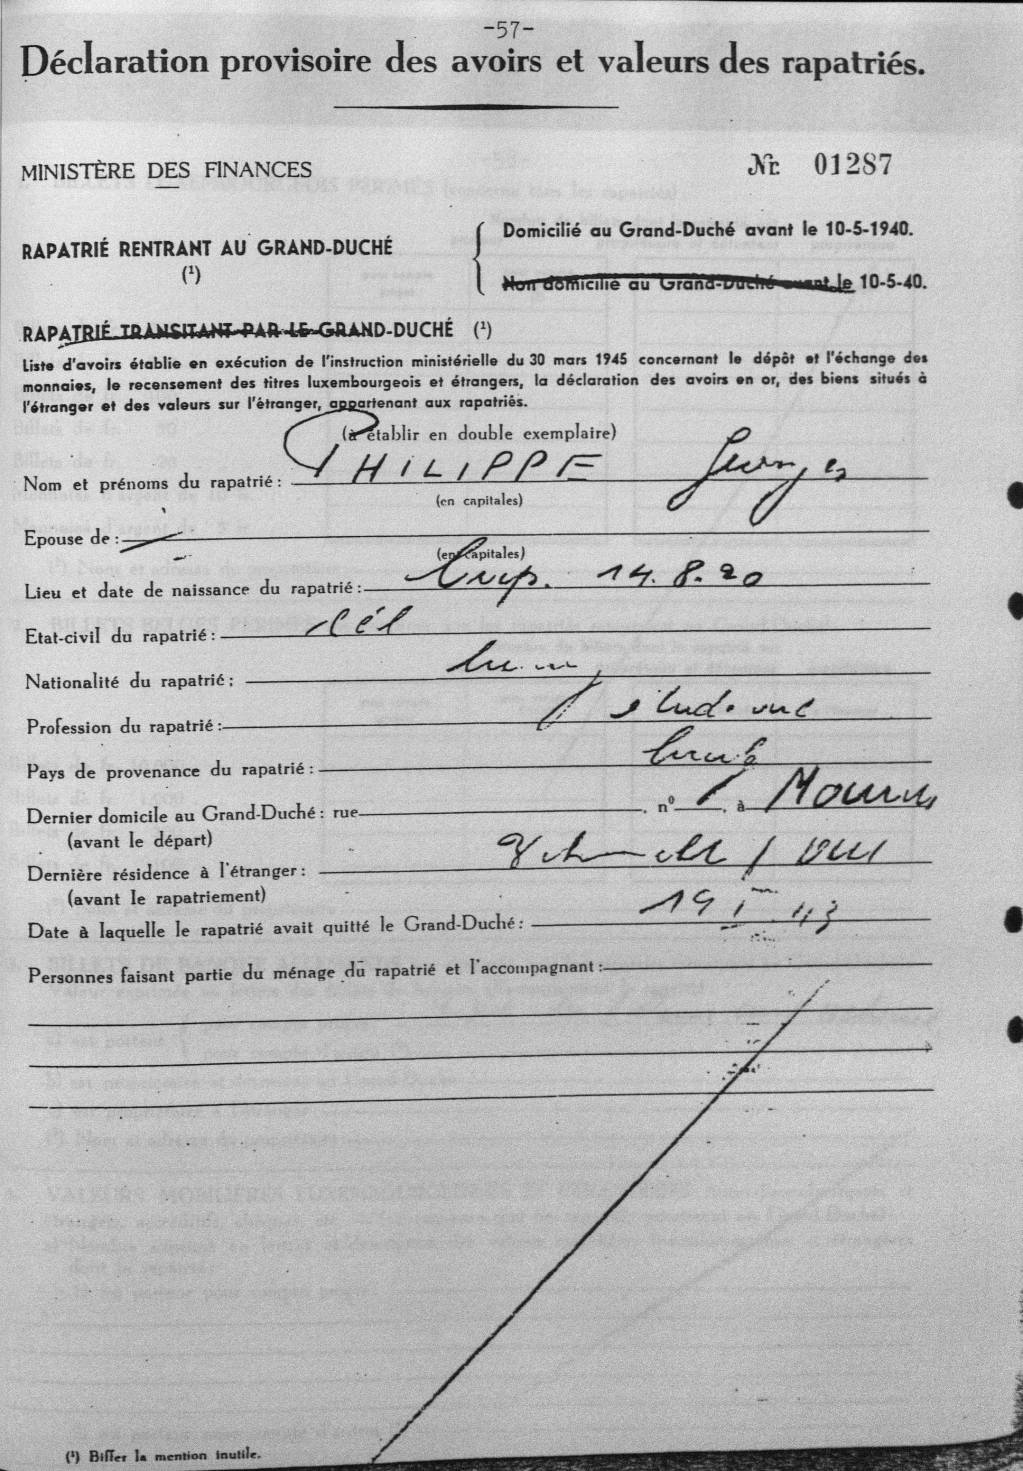 -57-
Déclaration provisoire des avoirs et valeurs des rapatriés.
MINISTÈRE DES FINANCES
Nr. 01287
RAPATRIÉ RENTRANT AU GRAND-DUCHÉ
(¹)
Domicilié au Grand-Duché avant le 10-5-1940.
Non domicilié au Grand-Duché avant le 10-5-40.
RAPATRIÉ TRANSITANT PAR LE GRAND-DUCHÉ (¹)
Liste d'avoirs établie en exécution de l'instruction ministérielle du 30 mars 1945 concernant le dépôt et l'échange des
monnaies, le recensement des titres luxembourgeois et étrangers, la déclaration des avoirs en or, des biens situés à
l'étranger et des valeurs sur l'étranger, appartenant aux rapatriés.
(à établir en double exemplaire)
Nom et prénoms du rapatrié : PHILIPPE Georges
(en capitales)
Epouse de :
(en capitales)
Lieu et date de naissance du rapatrié : 14. 8. 20
Etat-civil du rapatrié : cél
Nationalité du rapatrié :
Profession du rapatrié : étudiant
Pays de provenance du rapatrié :
Dernier domicile au Grand-Duché : rue . nº . à
(avant le départ)
Dernière résidence à l'étranger :
(avant le rapatriement)
Date à laquelle le rapatrié avait quitté le Grand-Duché : 19 I 43
Personnes faisant partie du ménage du rapatrié et l'accompagnant :
(¹) Biffer la mention inutile.